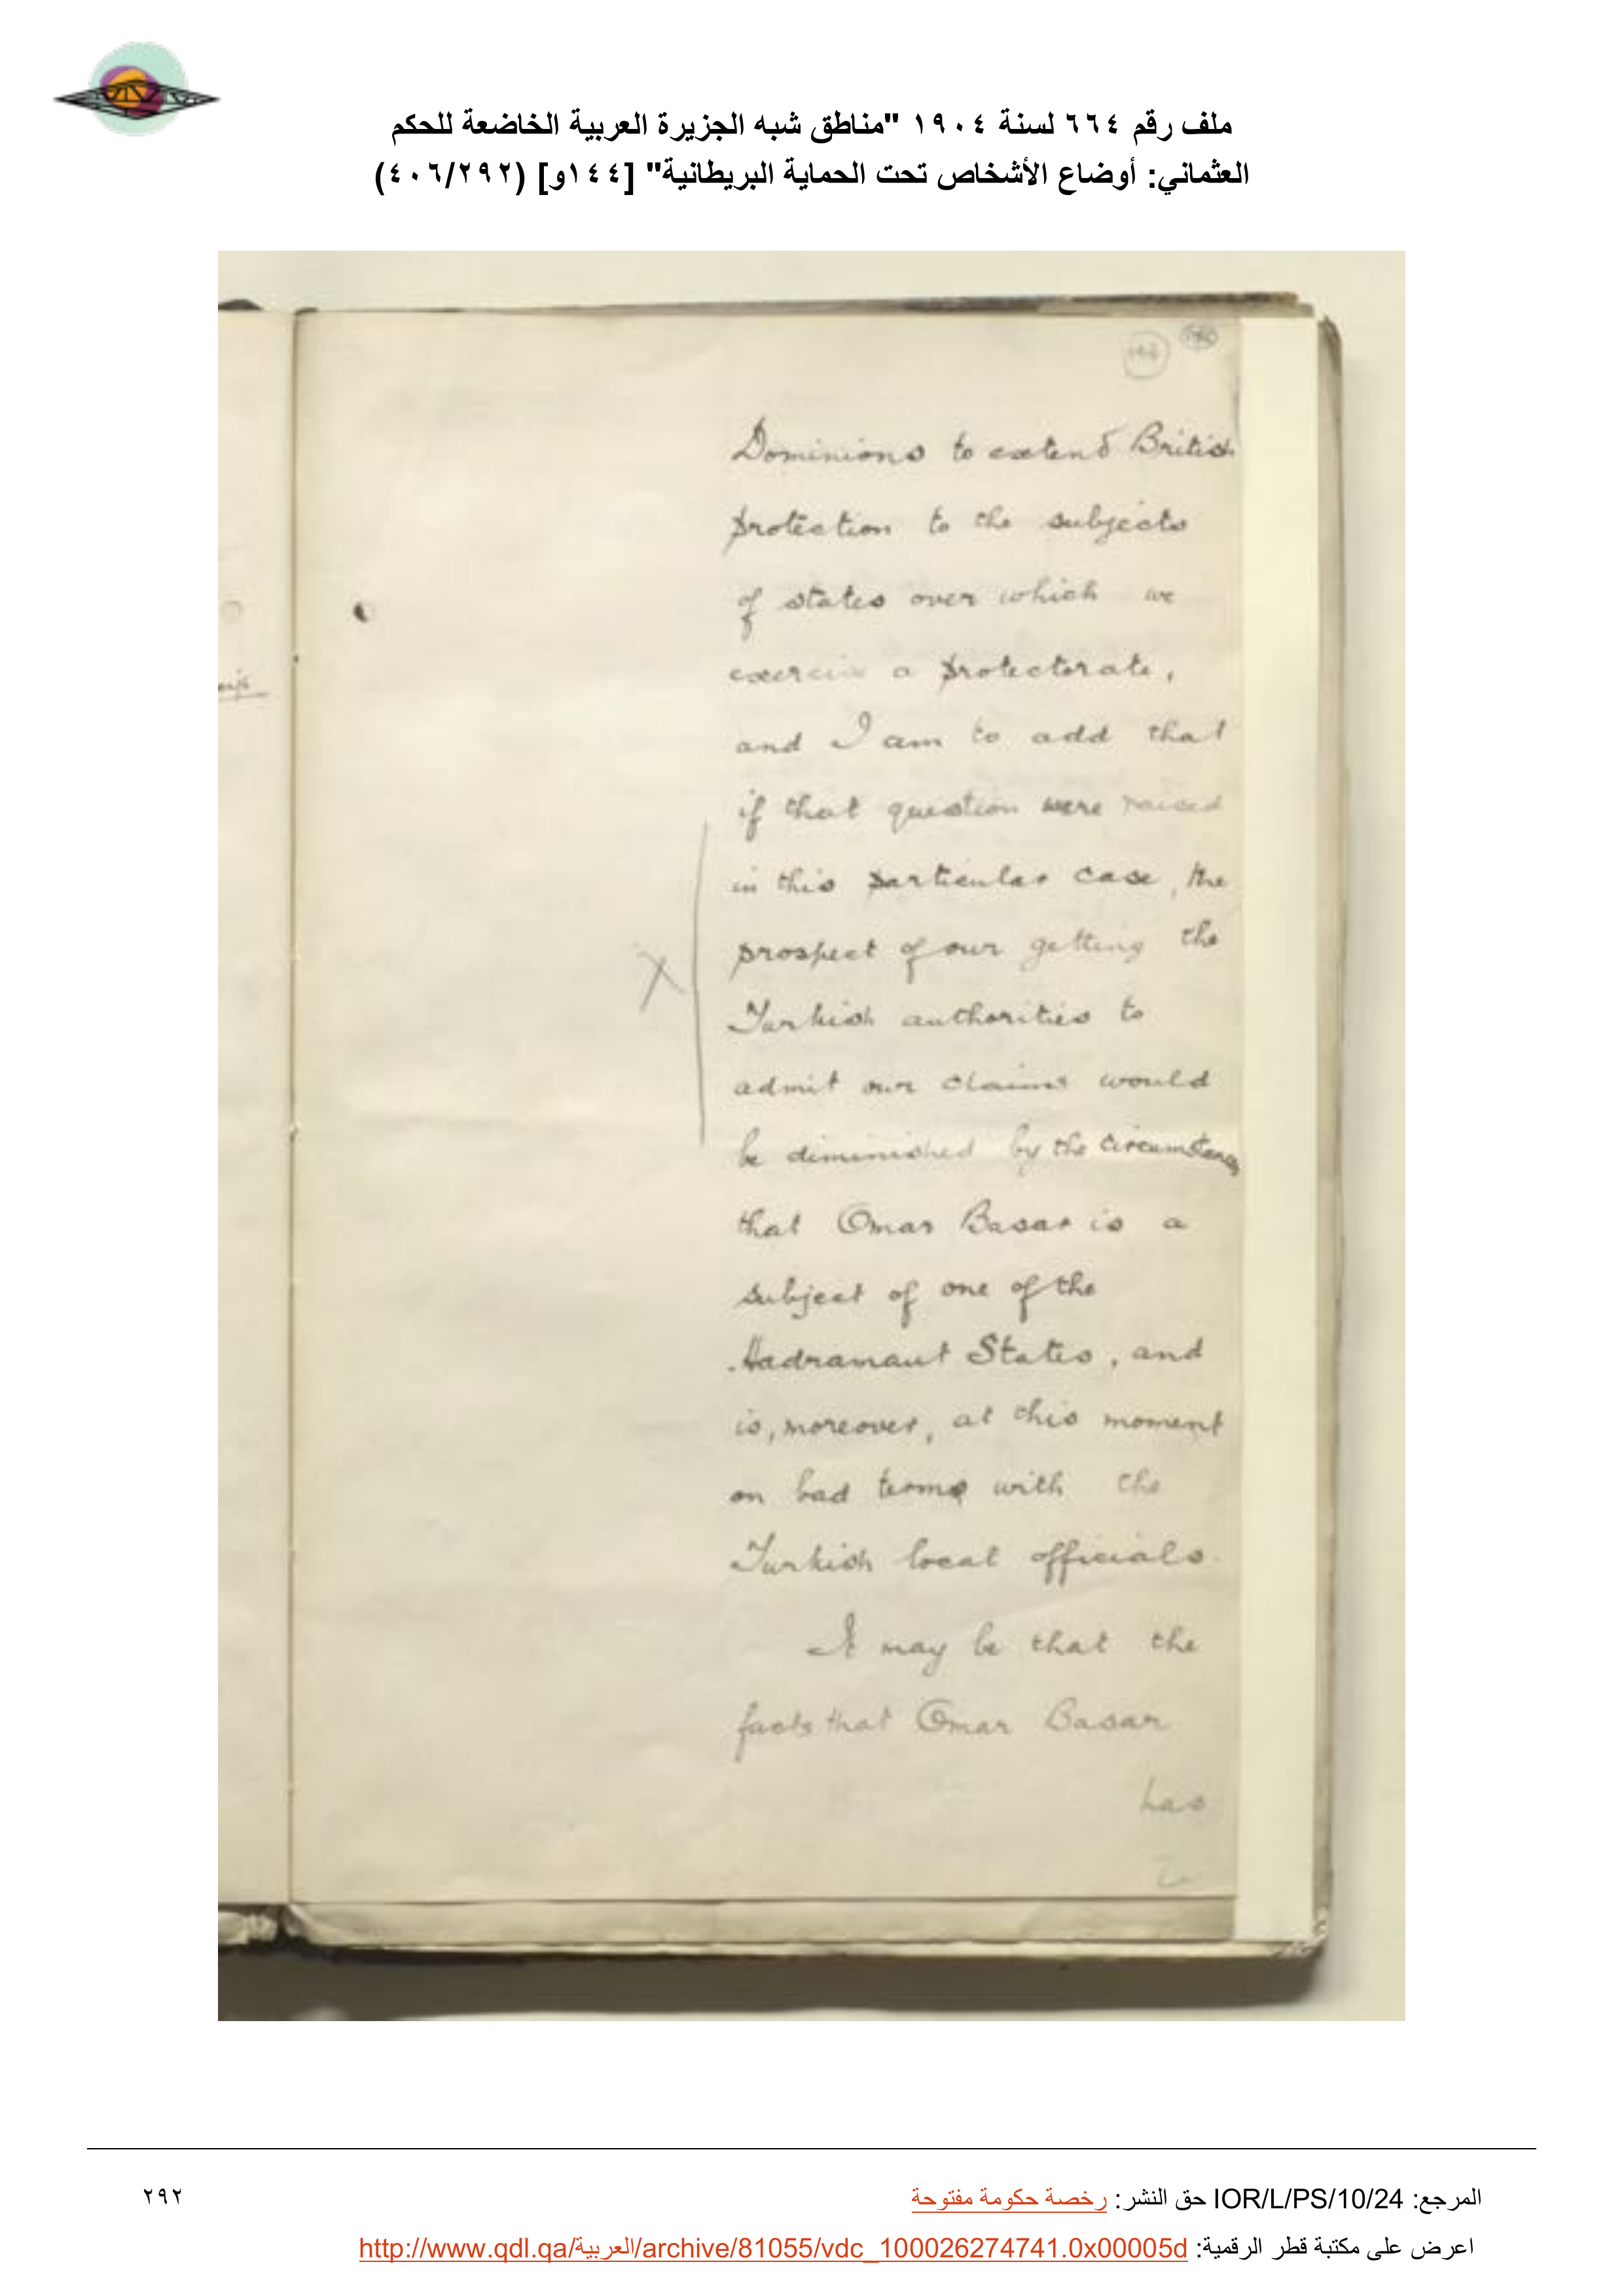 ملف رقم ٦٦٤ لسنة ١٩٠٤ "مناطق شبه الجزيرة العربية الخاضعة للحكم
العثماني: أوضاع الأشخاص تحت الحماية البريطانية" [١٤٤و] (٤٠٦/٢٩٢)
Dominions to extend British
protection to the subjects
of states over which we
exercise a protectorate,
and I am to add that
if that question were raised
in this particular case, the
prospect of our getting the
Turkish authorities to
admit our claims would
be diminished by the circumstance
that Omar Basar is a
subject of one of the
Hadramaut States, and
is, moreover, at this moment
on bad terms with the
Turkish local officials.
It may be that the
facts that Omar Basar
has
المرجع: IOR/L/PS/10/24 حق النشر: رخصة حكومة مفتوحة
٢٩٢
اعرض على مكتبة قطر الرقمية: http://www.qdl.qa/العربية/archive/81055/vdc_100026274741.0x00005d